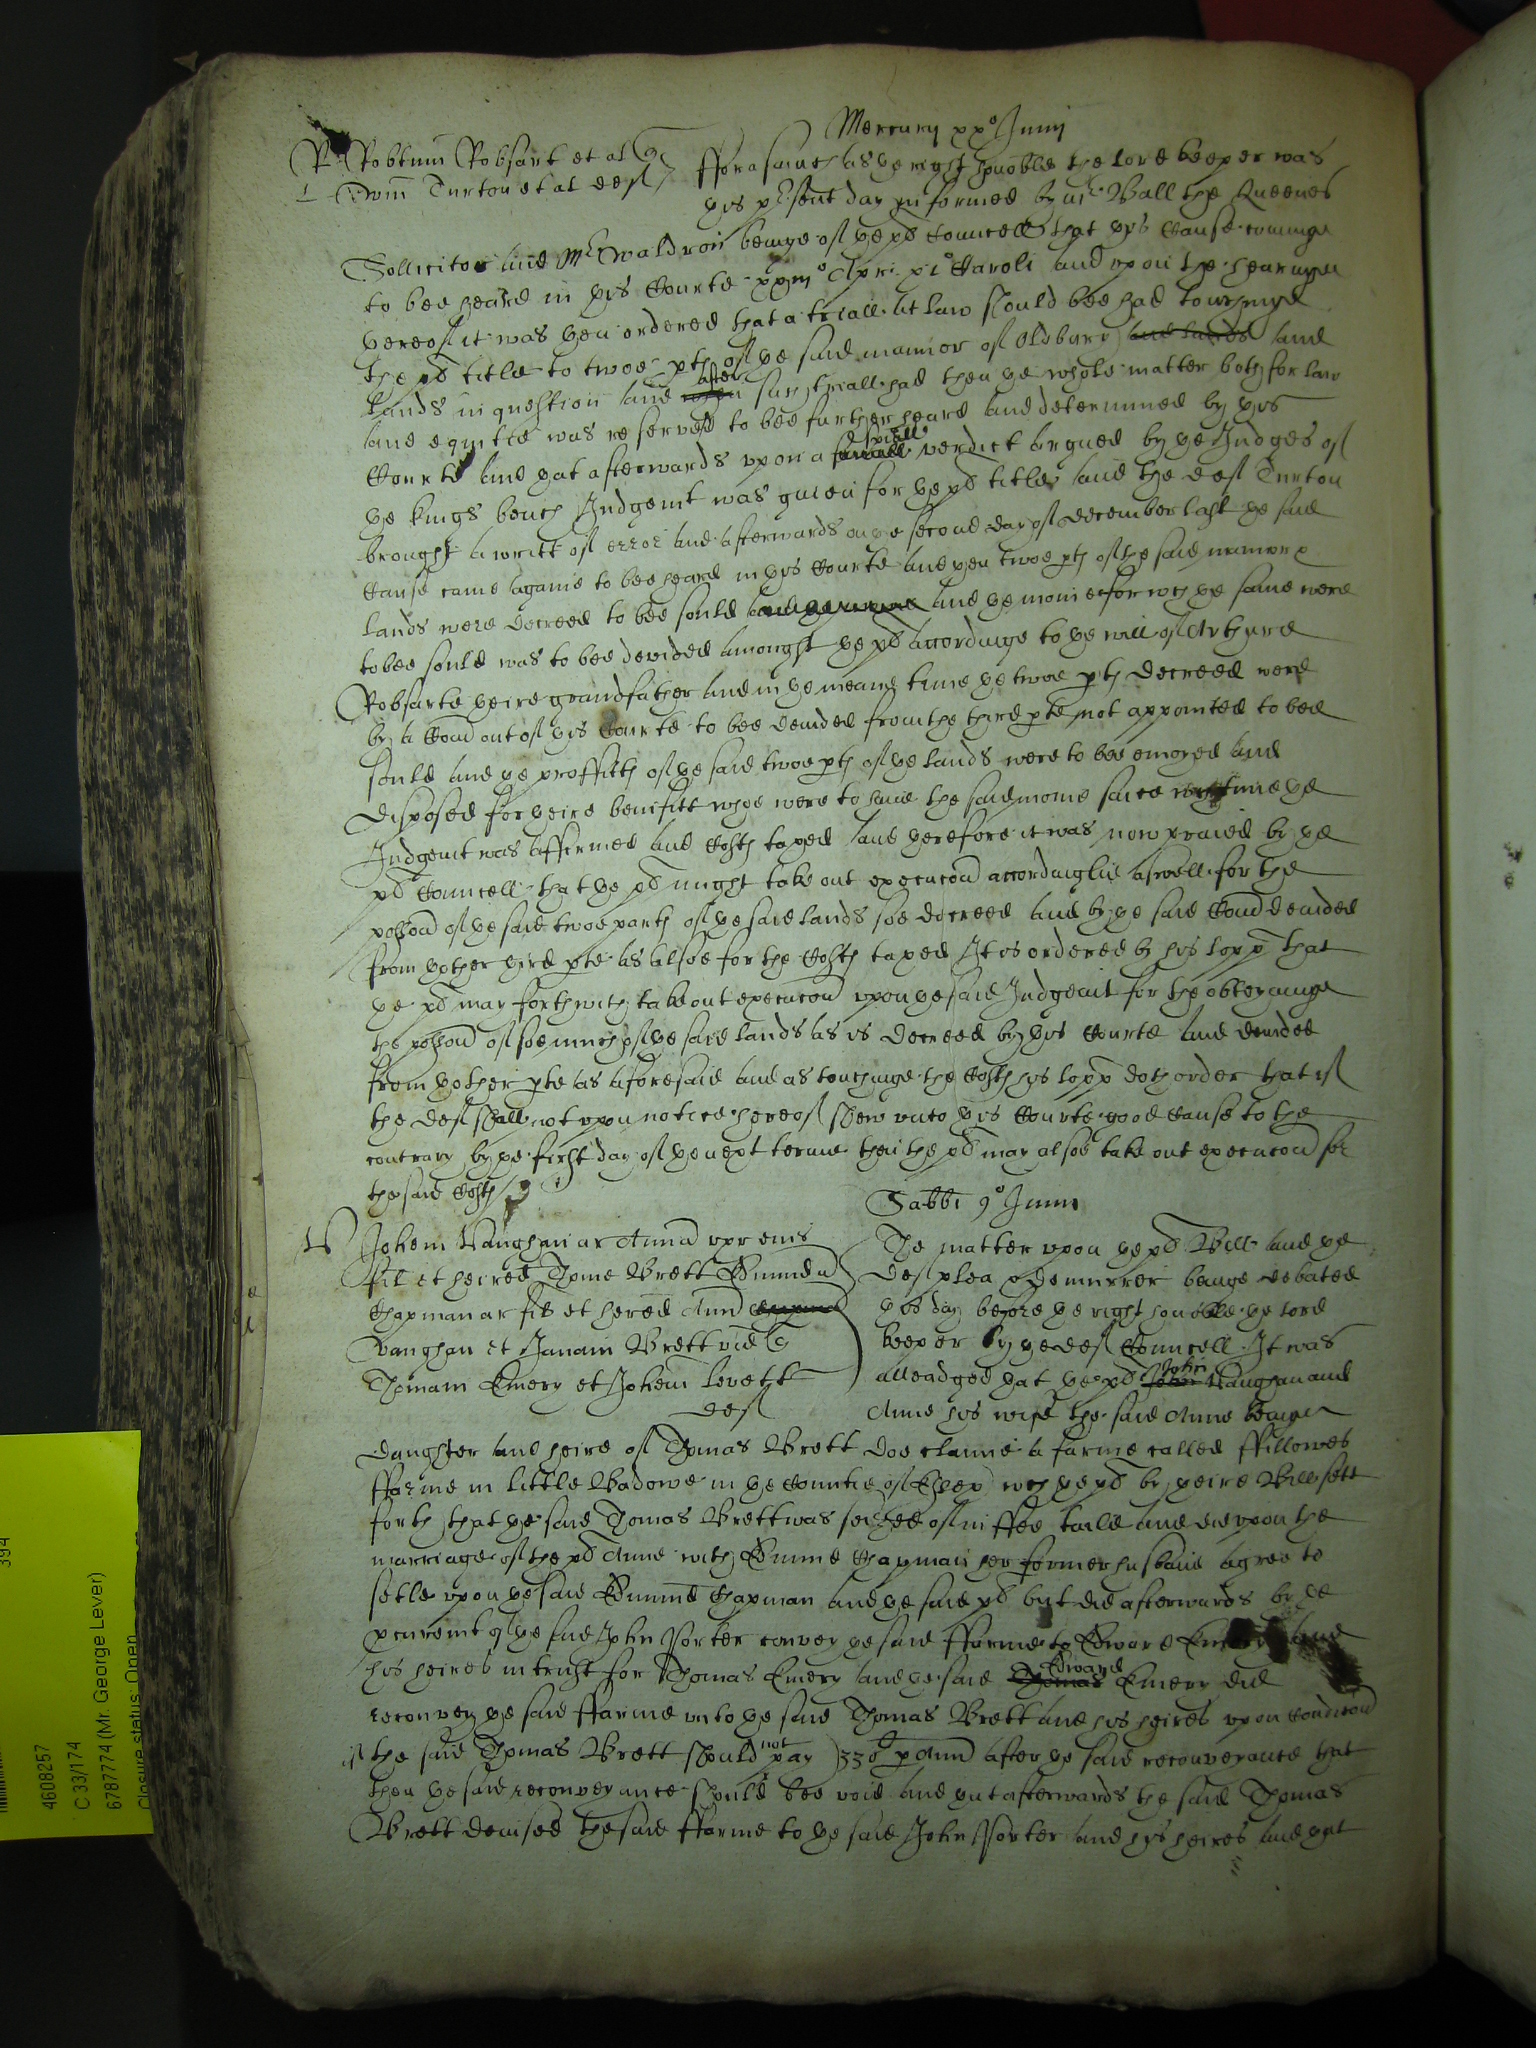 Mercurij xxo Junij
Robtum Robsart et al q
Willm Turton et al def
fforasmuch as ye right honoble the lord keeper was
this pᵉsent day informed by mr Ball the Queenes
Sollicitor and Mr Waldron beinge of ye plt Councell that this Cause cominge
to bee heard in this Courte Apr: xio Caroli and upon the hearinge
thereof it was then ordered that a triall at law should bee had touchinge
the plt title to twoe pts of ye said mannor of Oldbury and lands and
lands in question and when after such triall had then ye whole matter both for law
and equitie was reserved to bee further heard and determined by this
Courte and that afterwards upon a spiall verdict argued by ye Judges of
ye kings bench Judgemt was given for ye plt title and the def Turton
brought a writt of error and afterwards on ye second day of december last ye said
Cause came againe to bee heard in this Courte and then twoe pts of the said mannor &
lands were decreed to bee sould and ye monie for wch ye same were
to bee sould was to bee devided amongst ye plt accordinge to ye will of Arthure
Robsarte theire grandfather and in ye meane time ye twoe pts decreed were
by a Comn out of this Courte to bee devided from the third pte not appointed to bee
sould and ye proffitts of ye said twoe pts of ye lands were to bee emoyed and
disposed for theire benifitt whoe were to have the said monie since wch time ye
Judgemt was affirmed and Costs taxed and therefore it was now praied by ye
plt Councell that ye plt might take out execucon accordinglie aswell for the
possion of ye said twoe parts of ye said lands soe decreed and by ye said Comn devided
from thother third pte as alsoe for the Costs taxed It is ordered by his lopp that
ye plt may forthwith take out execucon upon ye said Judgemt for the obteyninge
the possion of soe much of ye said lands as is decreed by this Courte and devided
from thother pte as aforesaid and as touchinge the Costs his lopp doth order that if
the def shall not upon notice hereof shew unto this Courte good cause to the
contrary by ye first day of ye next terme then the plt may alsoe take out execucon for
the said Costs
Sabbi 9o Junij
Johem Vaughan ar Anna uxr eius
fil et heired Thome Brett Edmund
Chapman ar fil et hered Ann
Vaughan et Janam Brett vid q
Thomam Emery et Johem Levett
def
The matter upon ye plt Bill and ye
def plea & demurrer beinge debated
this day before ye right honoble ye lord
keeper by ye def Councell It was
alleadged that ye plt John John Vaughan and
Anne his wife the said Anne beinge
daughter and heire of Thomas Brett doe claime a farme called ffillowes
ffarme in little Badowe in ye Countie of Essex wch ye plt by theire Bill sett
forth that ye said Thomas Brett was seized of in ffee taile and did upon the
marriage of the plt Anne with Edmund Chapman her former husband agree to
setle upon ye said Edmund Chapman and ye said plt but did afterwards by ye
pcuremt of ye said John Porter convey ye said ffarme to Edward Emery and
his heires in trust for Thomas Emery and ye said Thomas Edward Emery did
reconvey ye said ffarme unto ye said Thomas Brett and his heires upon Condicon
if the said Thomas Brett should not pay p Ann after ye said reconveyance that
then ye said reconveyance should bee void and yt afterwards the said Thomas
Brett devised the said ffarme to ye said John Porter and his heires and yat
394
4608257
C 33/174
6787774 (Mr. George Lever)
Closure status: Open